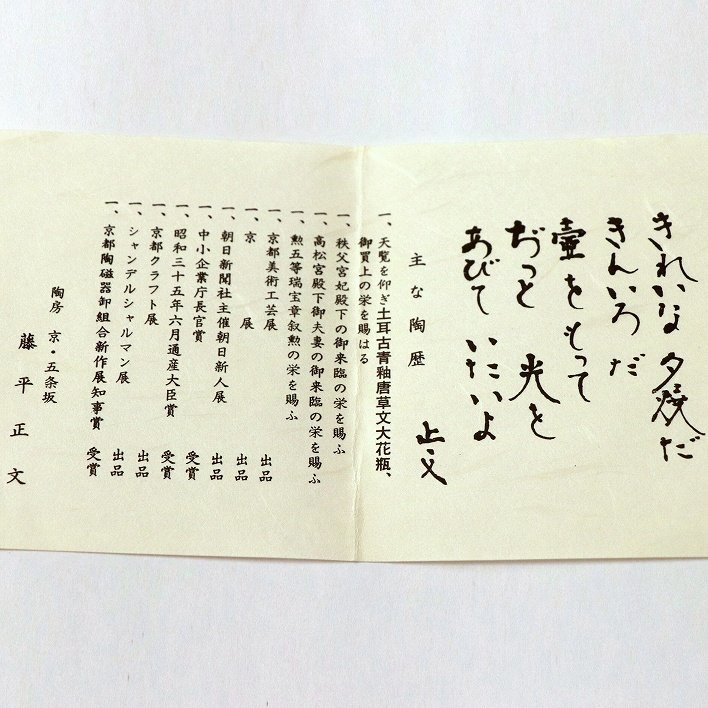 きれいな夕焼だ
きんいろだ
壷をもって
ぢっと 光と
あびて いたいよ
正文
主な陶歴
一、天覧を仰ぎ土耳古青釉唐草文大花瓶、
御買上の栄を賜はる
一、秩父宮妃殿下の御来臨の栄を賜ふ
一、高松宮殿下御夫妻の御来臨の栄を賜ふ
一、勲五等瑞宝章叙勲の栄を賜ふ
一、京都美術工芸展 出品
一、京 展 出品
一、朝日新聞社主催朝日新人展 出品
一、中小企業庁長官賞 受賞
一、昭和三十五年六月通産大臣賞 受賞
一、京都クラフト展 出品
一、シャンデルシャルマン展 出品
一、京都陶磁器卸組合新作展知事賞 受賞
陶房 京・五条坂
藤平正文